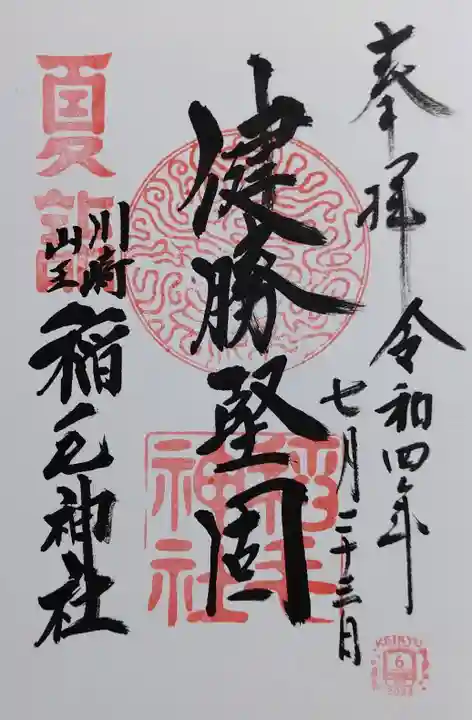 奉拝
令和四年
七月二十三日
健勝堅固
夏詣
川崎
山王
稲毛神社
稲毛
神社
KEIKYU
6